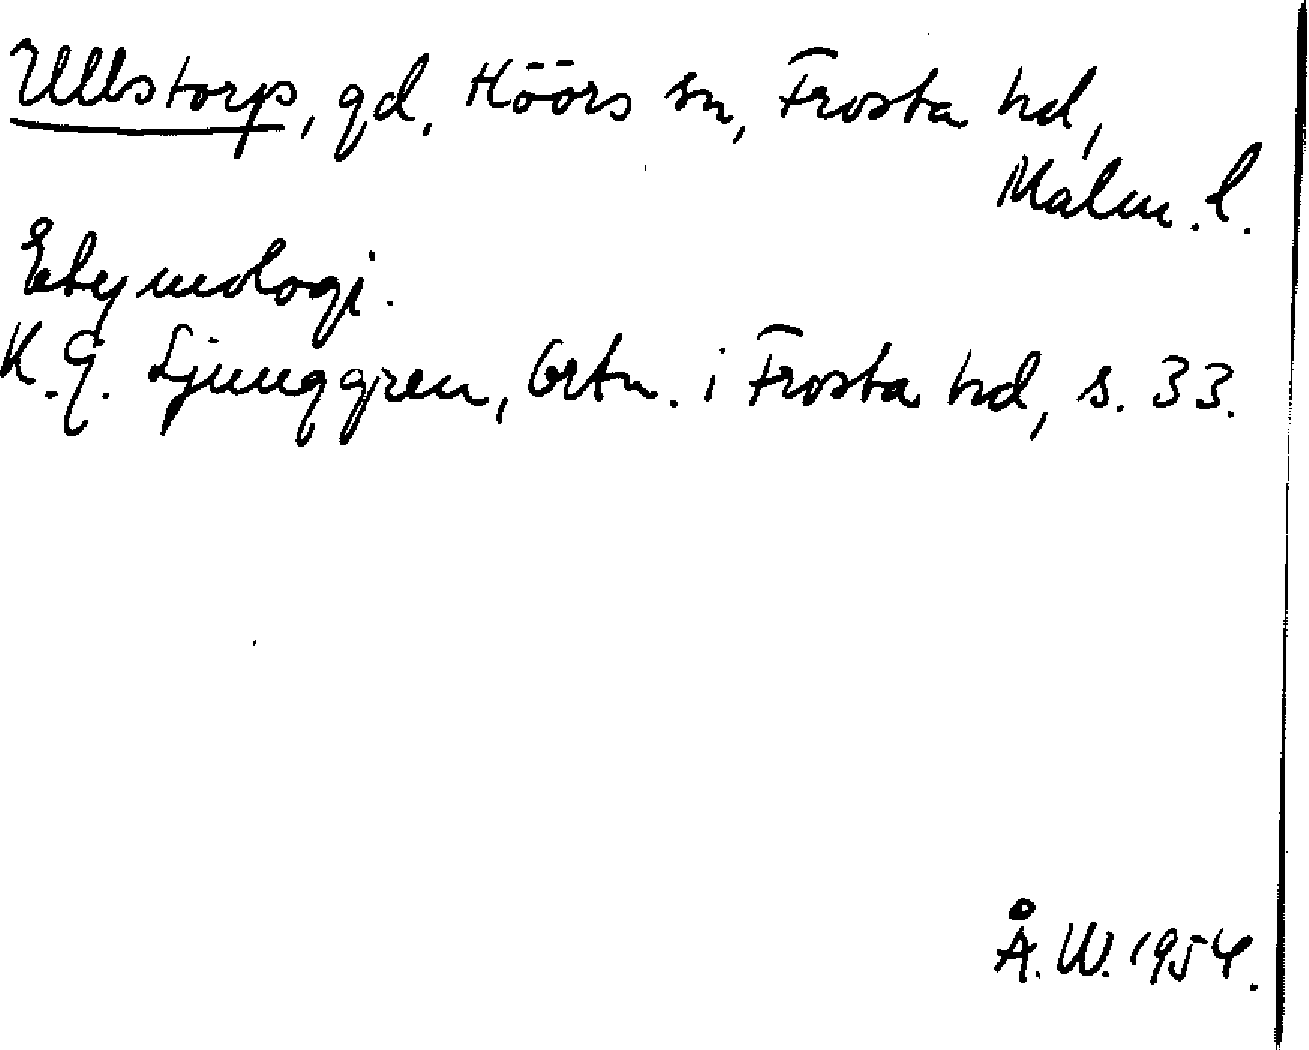 Ullstorp, gd, Höörs sn, Frosta hd,
Malm. l.
Etymologi.
K. G. Ljunggren, Ortn. i Frosta hd, s. 33.
Å. W. 1954.